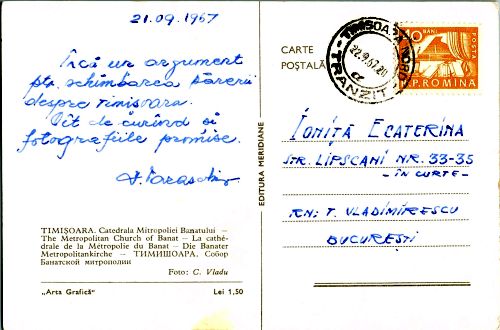 21.09.1967
Încă un argument
ptr. schimbarea părerii
despre Timișoara.
Vît de curînd și
fotografiile promise.
CARTE
POȘTALĂ
TIMIȘOARA NORD
22.9.67.20
TRANZIT
10 BANI
POSTA
R.P.ROMINA
EDITURA MERIDIANE
IONIȚĂ ECATERINA
STR. LIPSCANI NR. 33-35
– ÎN CURTE –
RN: T. VLADIMIRESCU
BUCUREȘTI
TIMIȘOARA. Catedrala Mitropoliei Banatului —
The Metropolitan Church of Banat — La cathé-
drale de la Métropolie du Banat — Die Banater
Metropolitankirche — ТИМИШОАРА, Собор
Банатской митрополии
Foto: C. Vladu
„Arta Grafică” Lei 1,50